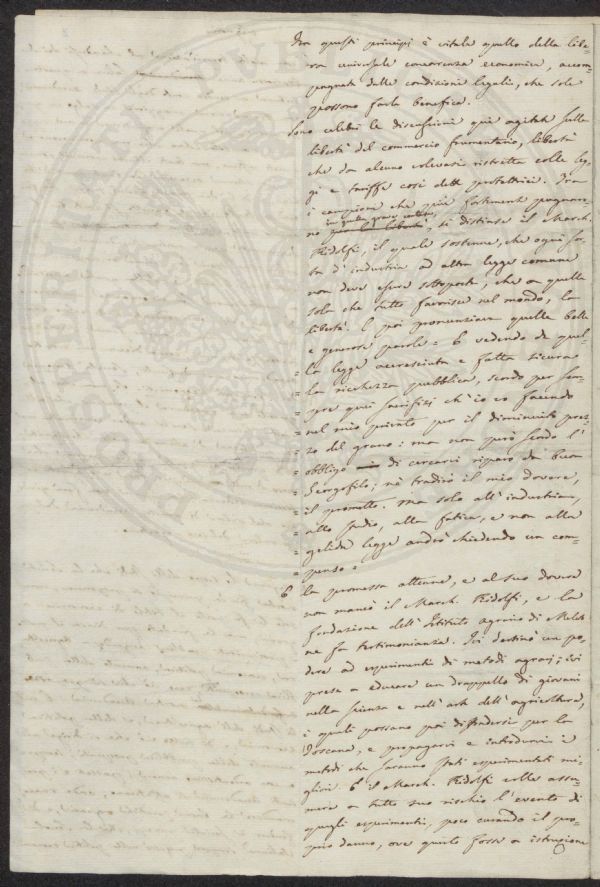 Tra questi principi è vitale quello della libe-
ra universale concorrenza economica, accom-
pagnata dalle condizioni legali, che sole
possono farla benefica.
Sono celebri le discussioni qui agitate sulla
libertà del commercio frumentario, libertà
che da alcuno volevasi ristretta colle leg-
gi e tariffe così dette protettrici. Tra
i campioni che più fortemente pugnaro-
in quella grave contesa
no per la libertà, si distinse il March.
Ridolfi, il quale sostenne, che ogni sor-
ta d'industria ad altra legge comune
non deve essere sottoposta, che a quella
sola che tutto favorisce nel mondo, la
libertà. E poi pronunziava quelle belle
e generose parole = E vedendo da quel-
= la legge accresciuta e fatta sicura
= la ricchezza pubblica, scordo per sem-
= pre quei sacrifizi ch'io vo facendo
= nel mio privato per il diminuito prez-
= zo del grano: ma non però scordo l'
= obbligo di cercarvi riparo da buon
= Georgofilo; nè tradirò il mio dovere,
= il prometto. Ma solo all'industria,
= allo studio, alla fatica, e non alla
= gelida legge andrò chiedendo un com-
= penso =
E la promessa attenne, e al suo dovere
non mancò il March. Ridolfi, e la
fondazione dell'Istituto agrario di Mele-
to ne fa testimonianza. Ivi destinò un po-
dere ad esperimenti di metodi agrarj; ivi
prese a educare un drappello di giovani
nella scienza e nell'arte dell'agricoltura,
i quali possano poi diffondersi per la
Toscana, e propagarvi e introdurvi i
metodi che saranno stati esperimentati mi-
gliori. E il March. Ridolfi volle assu-
mere a tutto suo rischio l'evento di
quegli esperimenti, poco curando il pro-
prio danno, ove questo fosse a istruzione
PROSPERITATI PUBLICAE